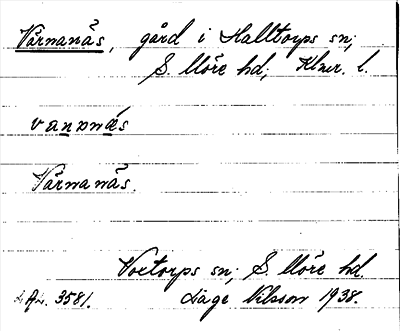 Värnanäs, gård i Halltorps sn;
S. Möre hd; Klmr. l.
vanənäs
Värnanäs.
Voxtorps sn; S. Möre hd.
3581. Åage Nilsson 1938.